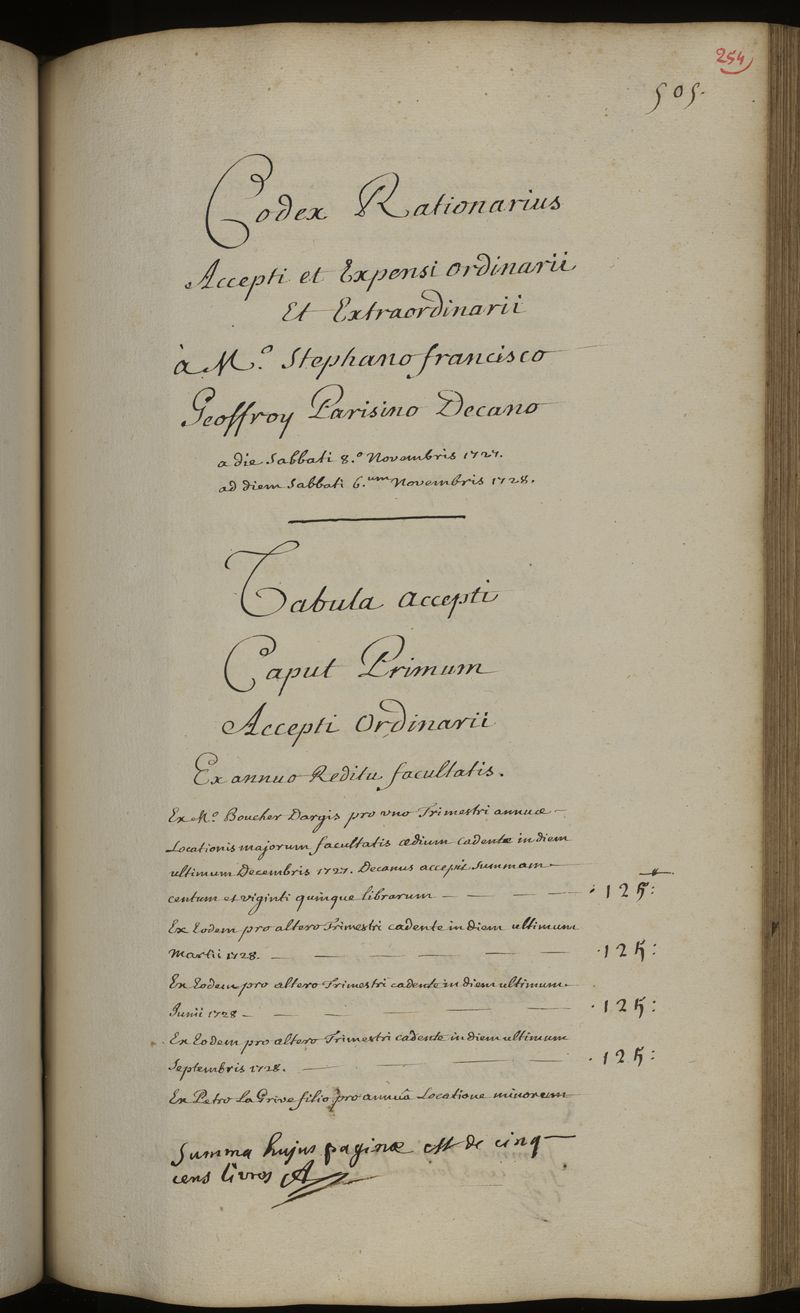 254
505.
Codex Rationarius
Accepti et Expensi ordinarii
Et Extraordinarii
à M.o Stephano francisco
Geoffroy Parisino Decano
a die Sabbati 8.o Novembris 1727.
ad diem Sabbati 6.um Novembris 1728.
Tabula accepti
Caput Primum
Accepti Ordinarii
Ex annuo Reditu facultatis.
Ex M.o Boucher Dargis pro uno Trimestri annuae
Locationis majorum facultatis aedium cadente in diem
ultimum Decembris 1727. Decanus accepit Summam
centum et viginti quinque librarum 125:
Ex Eodem pro altero Trimestri cadente in diem ultimum
Martii 1728. 125:
Ex Eodem pro altero Trimestri cadente in diem ultimum
Junii 1728 125:
Ex Eodem pro altero Trimestri cadente in diem ultimum
Septembris 1728. 125:
Ex Petro La Grive filio pro annuâ Locatione minorum
Summa hujus paginae est de cinq
cens livres